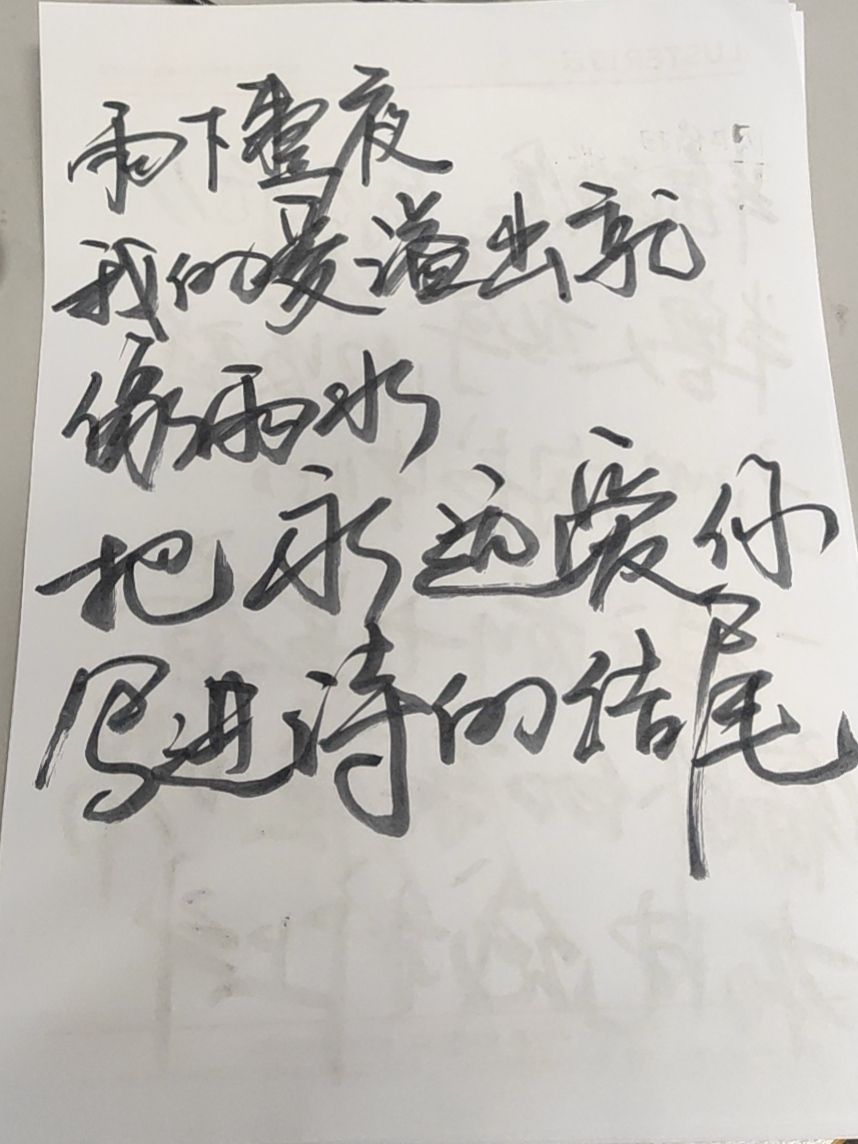 雨下整夜
我的爱溢出就
像雨水
把永远爱你
写进诗的结尾